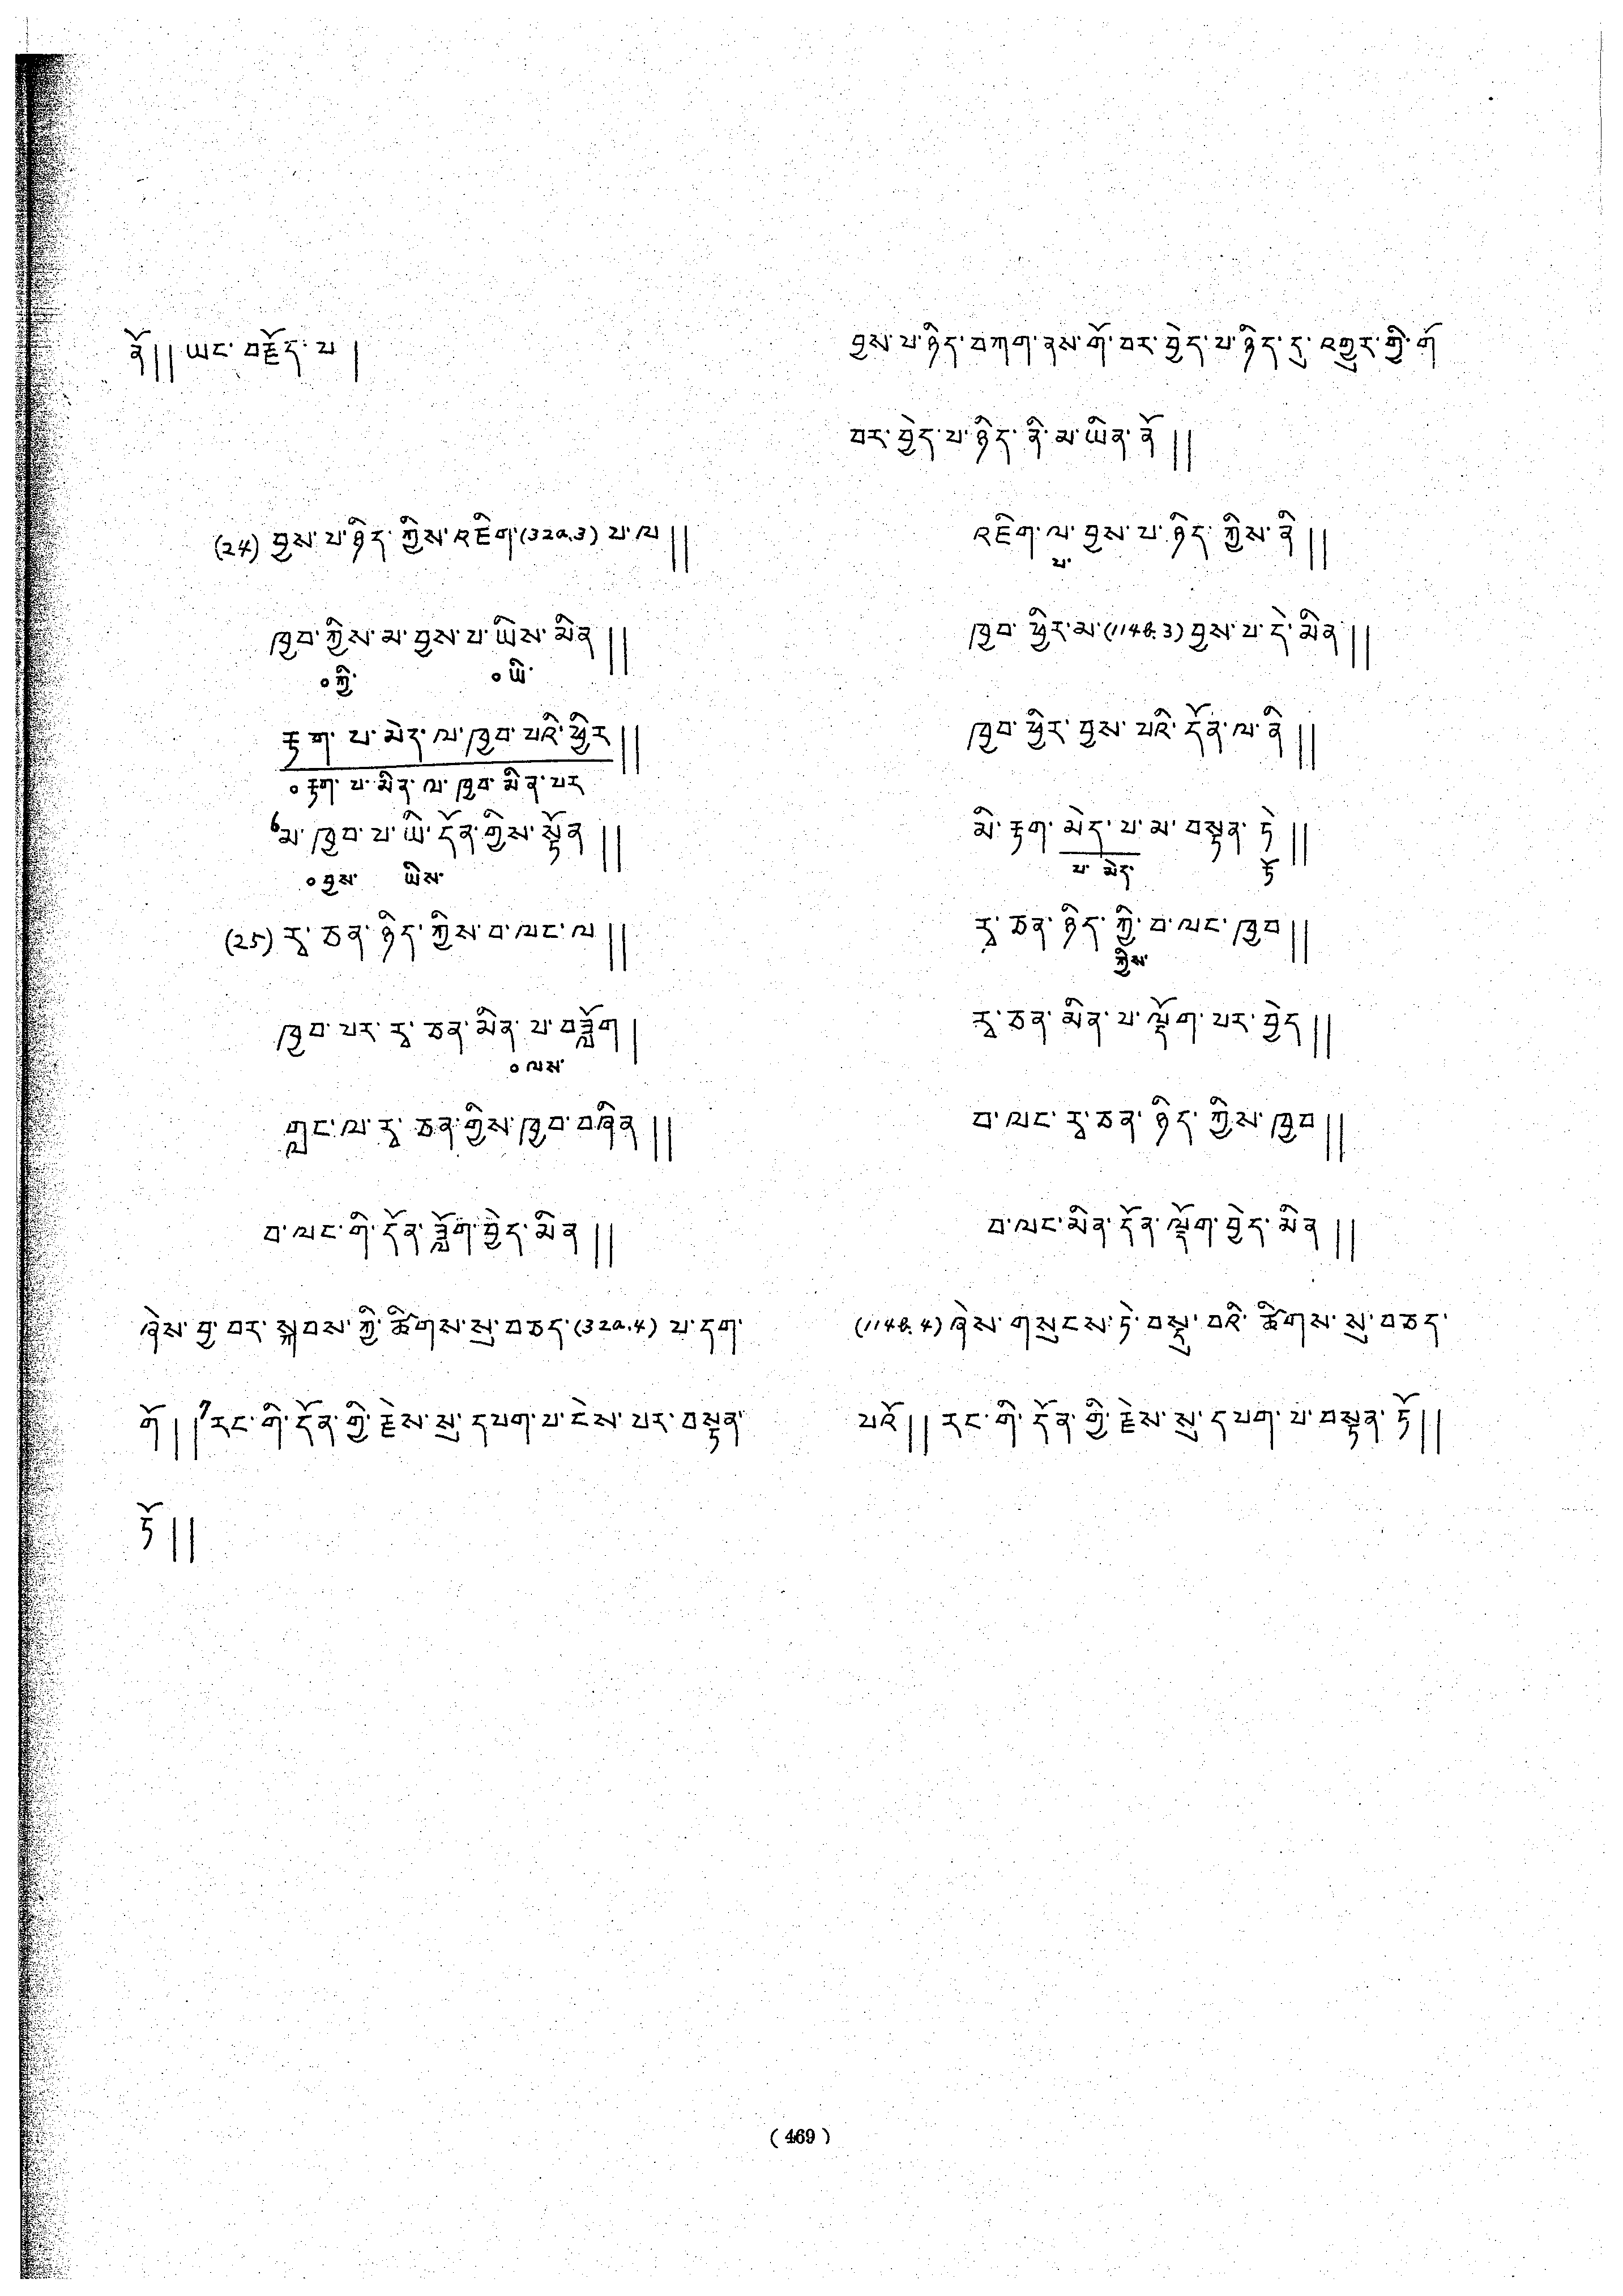 ནོ།། ཡང་བརྗོད་པ།
(24) བྱས་པ་ཉིད་ཀྱིས་འཇིག་(32a.3) པ་ལ།།
ཁྱབ་ཀྱིས་མ་བྱས་པ་ཡིས་མིན།།
༠ཀྱི་ ༠ཡི་
རྟག་པ་མེད་ལ་ཁྱབ་པའི་ཕྱིར།།
༠རྟག་པ་མིན་ལ་ཁྱབ་མིན་པར
6མ་ཁྱབ་པ་ཡི་དོན་གྱིས་སྟོན།།
༠བྱས་ ཡིས་
(25) རྭ་ཅན་ཉིད་ཀྱིས་བ་ལང་ལ།།
ཁྱབ་པར་རྭ་ཅན་མིན་པ་བཟློག།
༠ལས་
གླང་ལ་རྭ་ཅན་གྱིས་ཁྱབ་བཞིན།།
བ་ལང་གི་དོན་ཟློག་བྱེད་མིན།།
ཞེས་བྱ་བར་སྐབས་ཀྱི་ཚིགས་སུ་བཅད་(32a.4) པ་དག་
གོ།།7རང་གི་དོན་གྱི་རྗེས་སུ་དཔག་པ་ངེས་པར་བསྟན་
ཏོ།།
བྱས་པ་ཉིད་བཀག་ནས་གོ་བར་བྱེད་པ་ཉིད་དུ་འགྱུར་གྱི་གོ
བར་བྱེད་པ་ཉིད་ནི་མ་ཡིན་ནོ།།
འཇིག་ལ་བྱས་པ་ཉིད་ཀྱིས་ནི།།
པ་
ཁྱབ་ཕྱིར་མ་(114b.3) བྱས་པ་དེ་མིན།།
ཁྱབ་ཕྱིར་བྱས་པའི་དོན་ལ་ནི།།
མི་རྟག་མེད་པ་མ་བསྟན་ཏེ།།
པ་མེད་ ཏོ
རྭ་ཅན་ཉིད་ཀྱི་བ་ལང་ཁྱབ།།
ཀྱིས་
རྭ་ཅན་མིན་པ་ལྡོག་པར་བྱེད།།
བ་ལང་རྭ་ཅན་ཉིད་ཀྱིས་ཁྱབ།།
བ་ལང་མིན་དོན་ལྡོག་བྱེད་མིན།།
(114b.4) ཞེས་གསུངས་ཏེ་བསྡུ་བའི་ཚིགས་སུ་བཅད་
པའོ།། རང་གི་དོན་གྱི་རྗེས་སུ་དཔག་པ་བསྟན་ཏོ།།
( 469 )